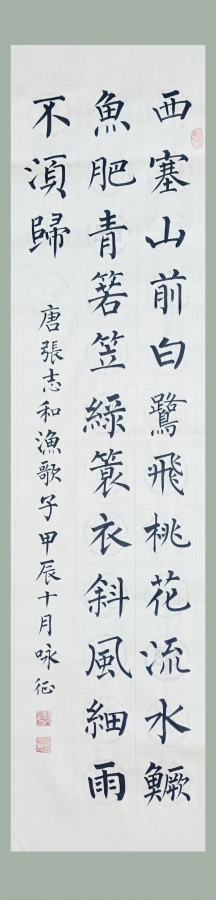 西塞山前白鷺飛桃花流水鱖
魚肥青箬笠綠簑衣斜風細雨
不須歸
唐張志和漁歌子甲辰十月咏征